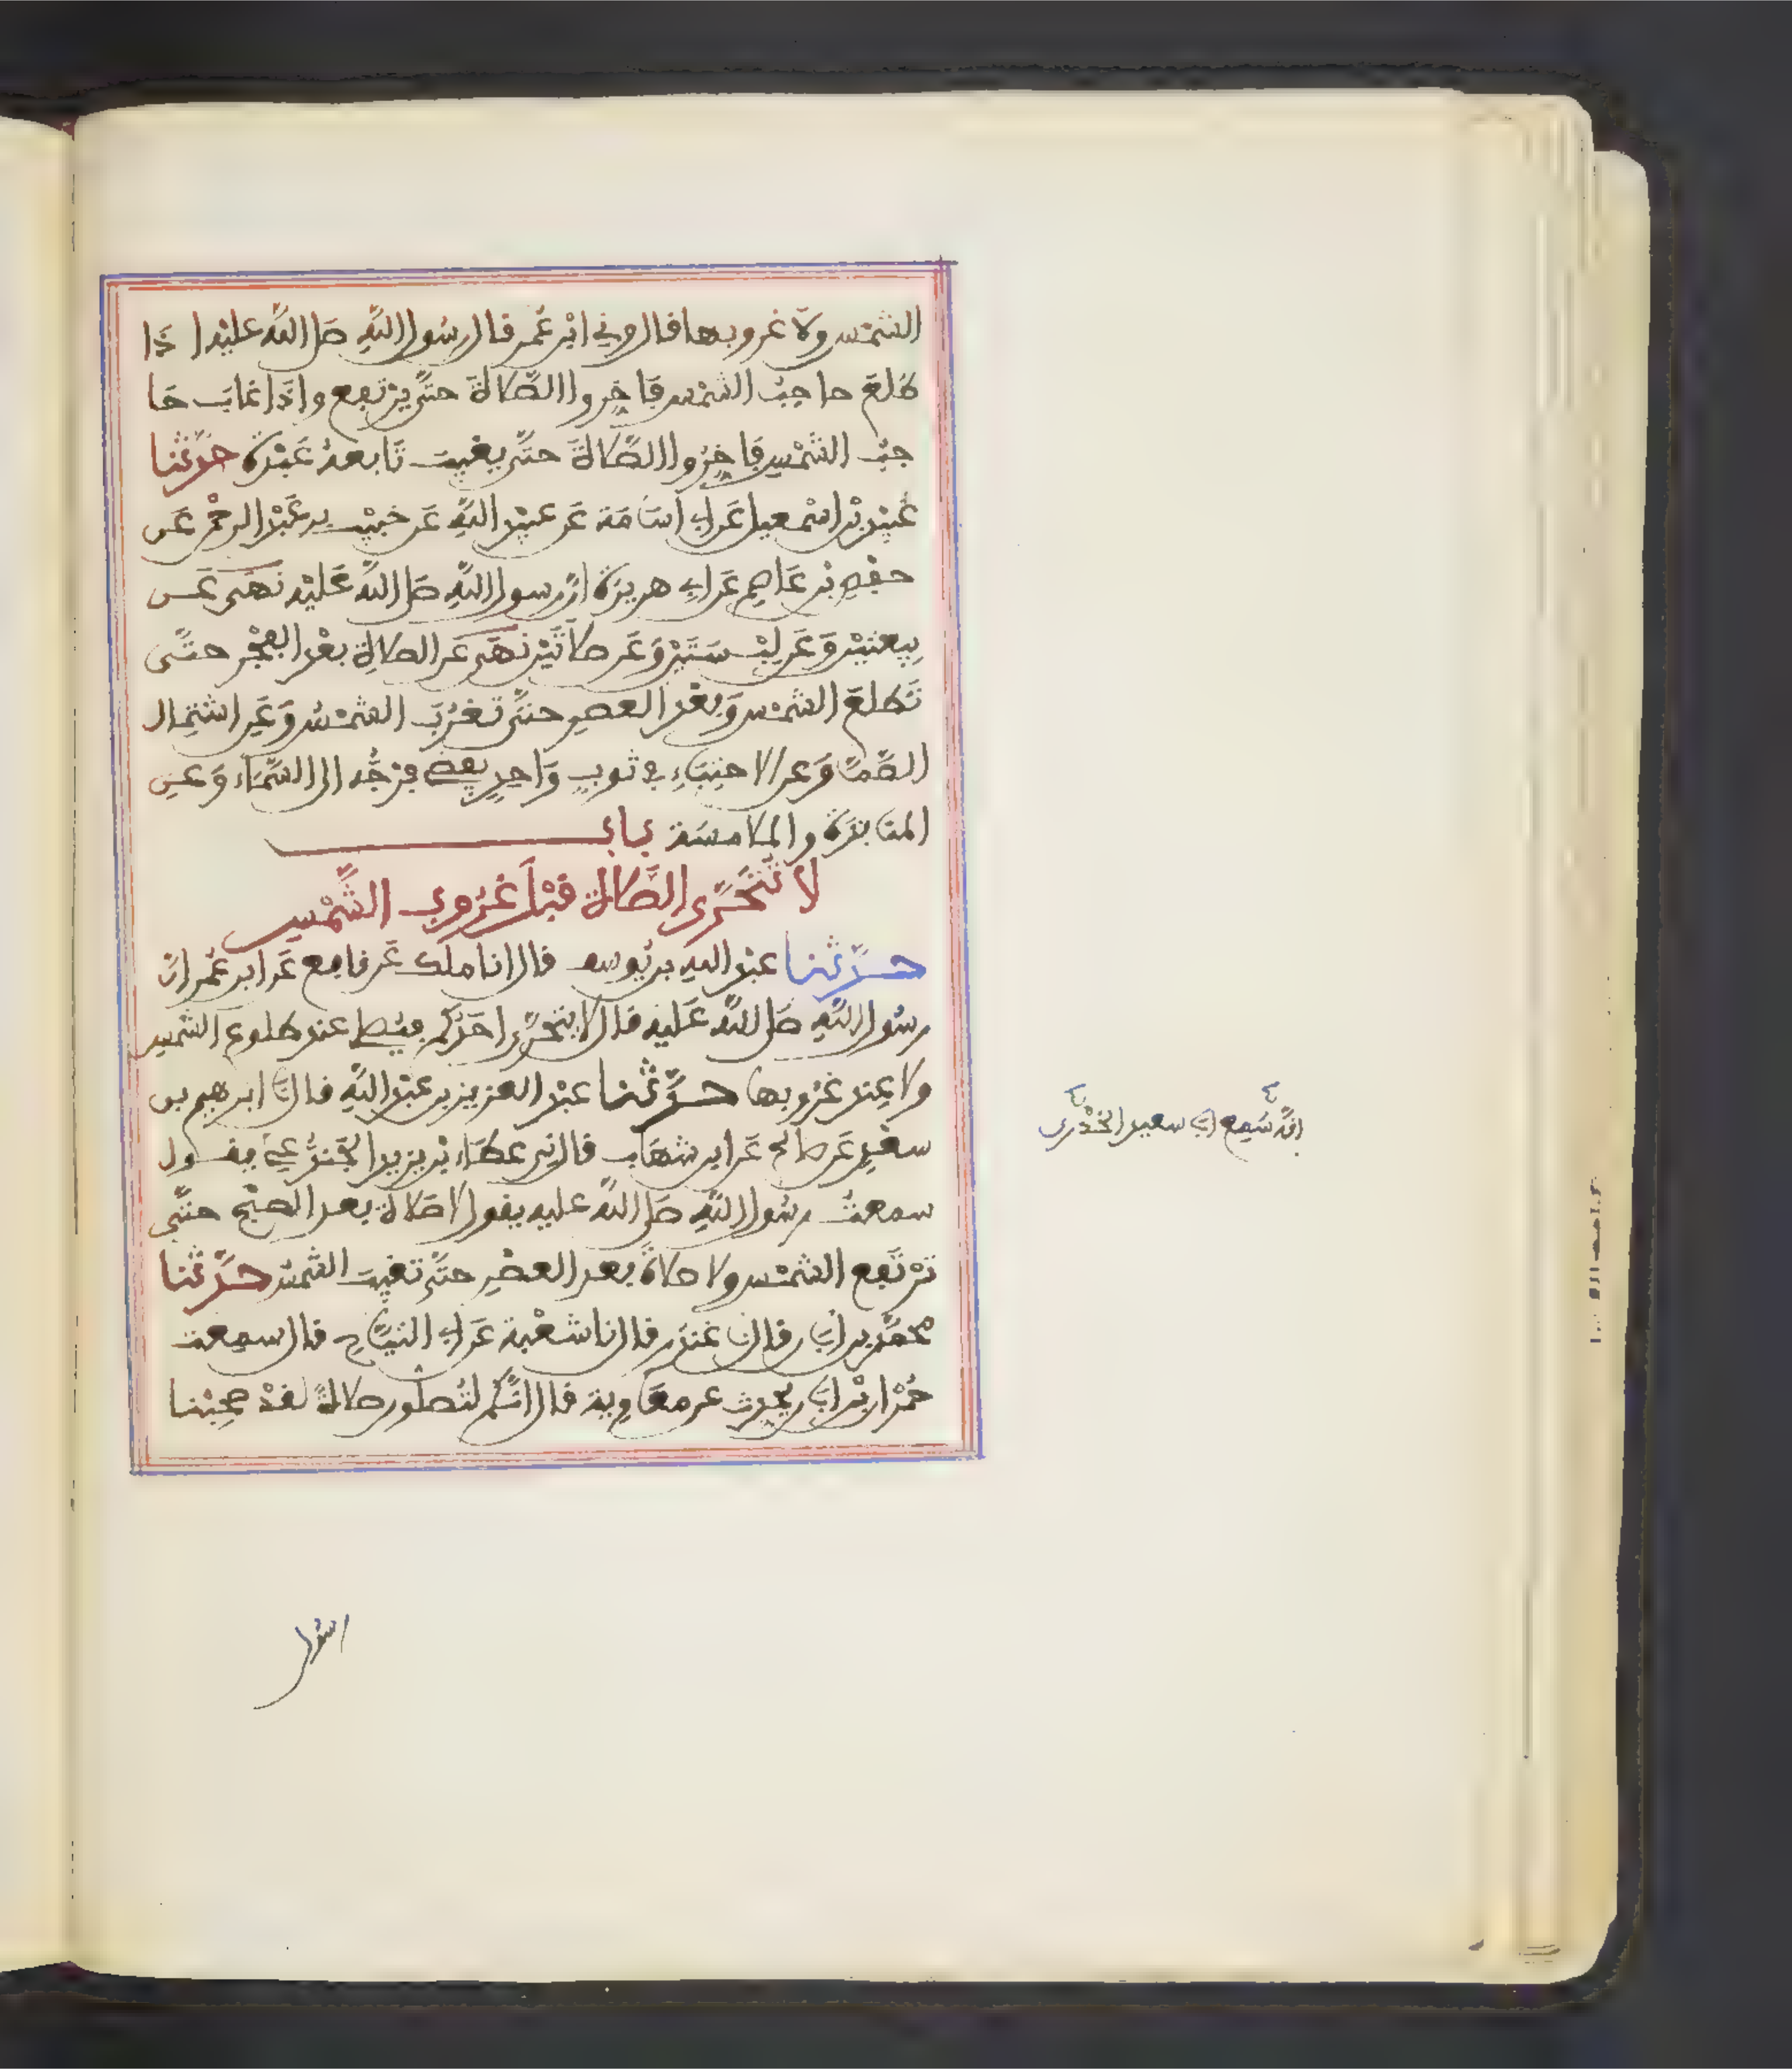 الشمس ولا غروبها قال وني ابن عمر قال رسول الله صلى الله عليه اذا
طلع حاجب الشمس فاخروا الصلاة حتى يرتفع واذا غاب حا
جب الشمس فاخروا الصلاة حتى يغيب تابعه عبدة حدثنا
عبيد بن اسمعيل عن ابي اسامة عن عبيد الله عن خبيب بن عبد الرحمن عن
حفص بن عاصم عن ابي هريرة ان رسول الله صلى الله عليه نهى عن
بيعتين وعن لبستين وعن صلاتين نهى عن الصلاة بعد الفجر حتى
تطلع الشمس وبعد العصر حتى تغرب الشمس وعن اشتمال
الصما وعن الاحتباء في ثوب واحد يفضي بفرجه الى السماء وعن
المنابذة والملامسة باب
لا تتحرى الصلاة قبل غروب الشمس
حدثنا عبد الله بن يوسف قال انا ملك عن نافع عن ابن عمر ان
رسول الله صلى الله عليه قال لا يتحرى احدكم فيصلي عند طلوع الشمس
ولا عند غروبها حدثنا عبد العزيز بن عبد الله قال نا ابرهيم بن
سعد عن صالح عن ابن شهاب قال ني عطاء بن يزيد الجندعي يقول
سمعت رسول الله صلى الله عليه يقول لا صلاة بعد الصبح حتى
ترتفع الشمس ولا صلاة بعد العصر حتى تغيب الشمس حدثنا
محمد بن ابان قال نا غندر قال نا شعبة عن ابي التياح قال سمعت
حمران بن ابان يحدث عن معاوية قال انكم لتصلون صلاة لقد صحبنا
انه سمع ابا سعيد الخدري
رسول